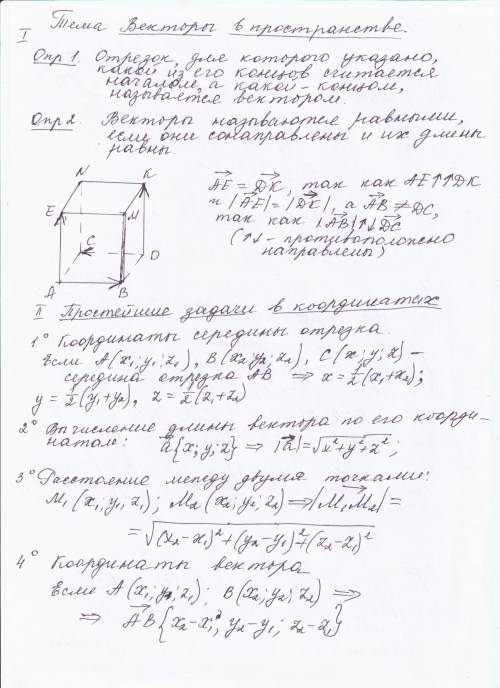 I Тема Векторы в пространстве.
Опр 1. Отрезок, для которого указано,
какой из его концов считается
началом, а какой – концом,
называется вектором.
Опр 2 Векторы называются равными,
если они сонаправлены и их длины
равны.
N K
E M
C D
A B
AE = DK, так как AE↑↑DK
и |AE| = |DK|, а AB ≠ DC,
так как |AB|↑↓DC
(↑↓ – противоположно
направлены)
II Простейшие задачи в координатах
1° Координаты середины отрезка.
Если A(x₁; y₁; z₁), B(x₂; y₂; z₂), C(x; y; z) –
середина отрезка AB ⇒ x = ½(x₁+x₂);
y = ½(y₁+y₂), z = ½(z₁+z₂)
2° Вычисление длины вектора по его коорди-
натам: a{x; y; z} ⇒ |a| = √x²+y²+z²;
3° Расстояние между двумя точками:
M₁(x₁; y₁; z₁); M₂(x₂; y₂; z₂) ⇒ |M₁M₂| =
= √(x₂-x₁)²+(y₂-y₁)²+(z₂-z₁)²
4° Координаты вектора
Если A(x₁; y₁; z₁); B(x₂; y₂; z₂) ⇒
⇒ AB{x₂-x₁; y₂-y₁; z₂-z₁}